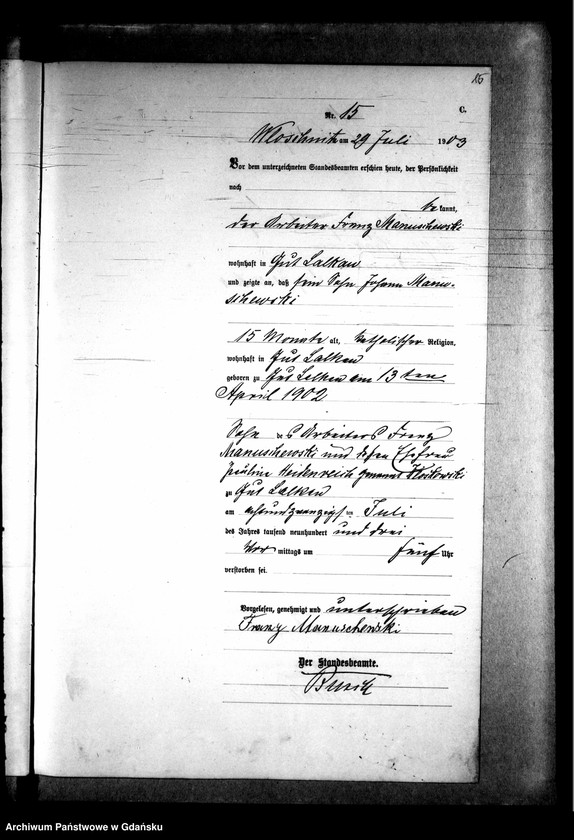 15
C.
Nr. 15
Wloschnitz am 29 Juli 1903
Vor dem unterzeichneten Standesbeamten erschien heute, der Persönlichkeit
nach
be kannt,
der Arbeiter Franz Manuschewski
wohnhaft in Gut Lalkau
und zeigte an, daß sein Sohn Johann Manu-
schewski
15 Monate alt, katholischer Religion,
wohnhaft in Gut Lalkau
geboren zu Gut Lalkau am 13 ten
April 1902
Sohn des Arbeiters Franz
Manuschewski und dessen Ehefrau
Pauline Heidenreich genannt
zu Gut Lalkau
am achtundzwanzigsten Juli
des Jahres tausend neunhundert und drei
Vor mittags um fünf Uhr
verstorben sei.
Vorgelesen, genehmigt und unterschrieben
Franz Manuschewski
Der Standesbeamte.
Archiwum Państwowe w Gdańsku